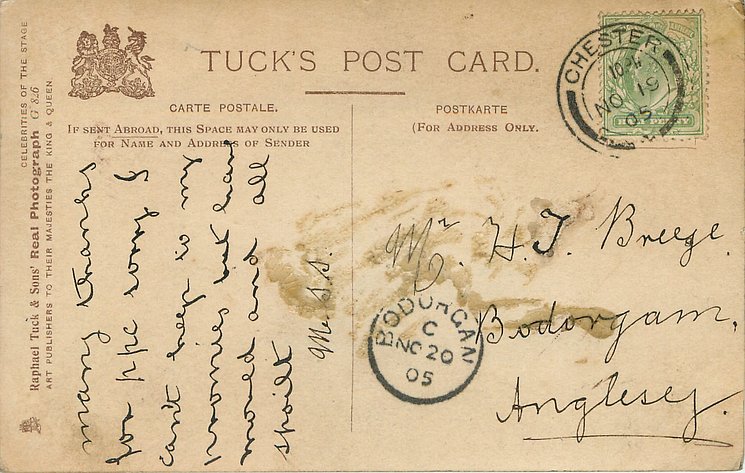 TUCK'S POST CARD.
CARTE POSTALE.
IF SENT ABROAD, THIS SPACE MAY ONLY BE USED
FOR NAME AND ADDRESS OF SENDER
POSTKARTE
(FOR ADDRESS ONLY.
CELEBRITIES OF THE STAGE
Raphael Tuck & Sons' Real Photograph G 826
ART PUBLISHERS TO THEIR MAJESTIES THE KING & QUEEN.
many thanks
for ppc sorry I
can't help is my
but had
mould and all
spoilt
CHESTER
NO 19
05
Mr. H. J. Breege.
Bodorgam.
Anglesey.
BODORGAN
C
NO 20
05